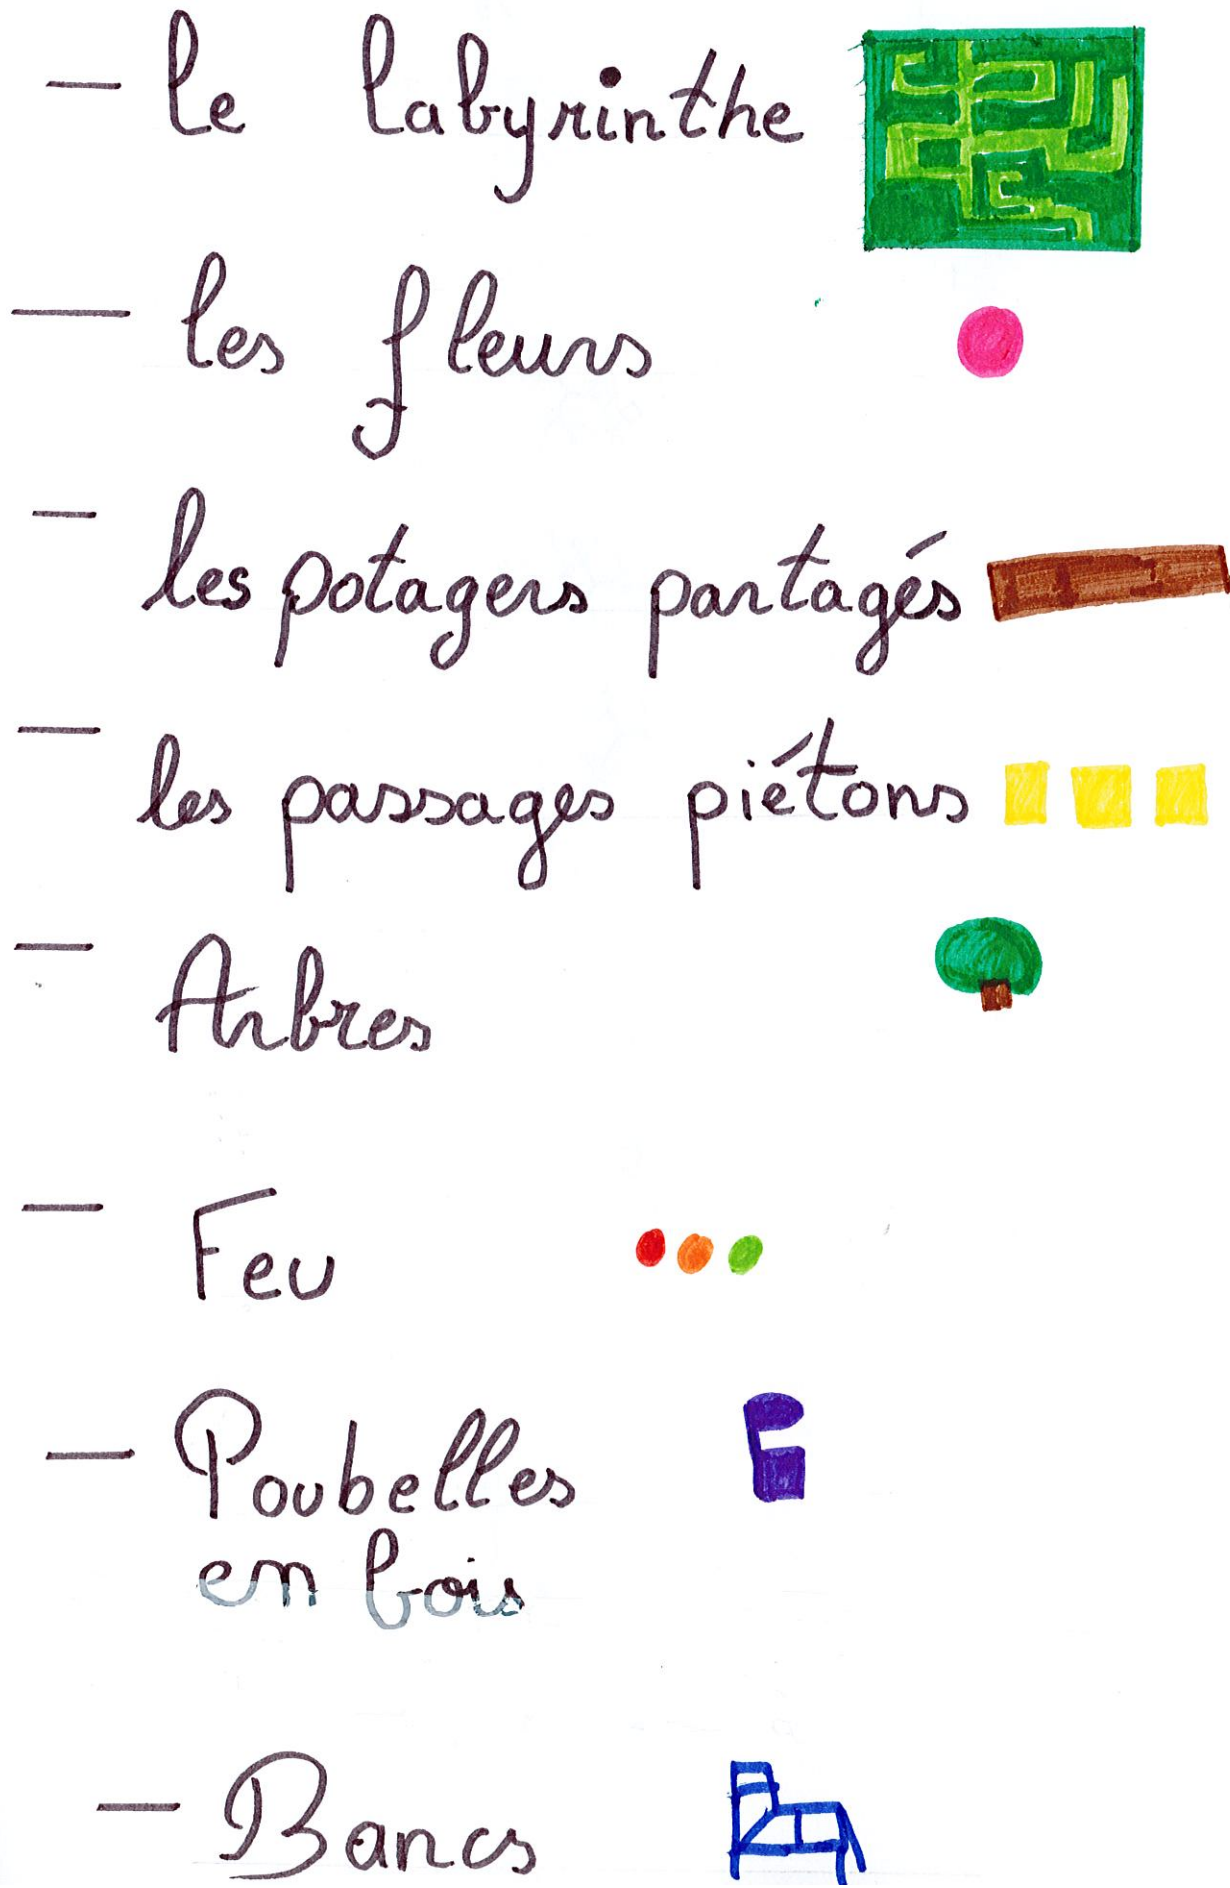 - le labyrinthe
- les fleurs
- les potagers partagés
- les passages piétons
- Arbres
- Feu
- Poubelles
en bois
- Bancs